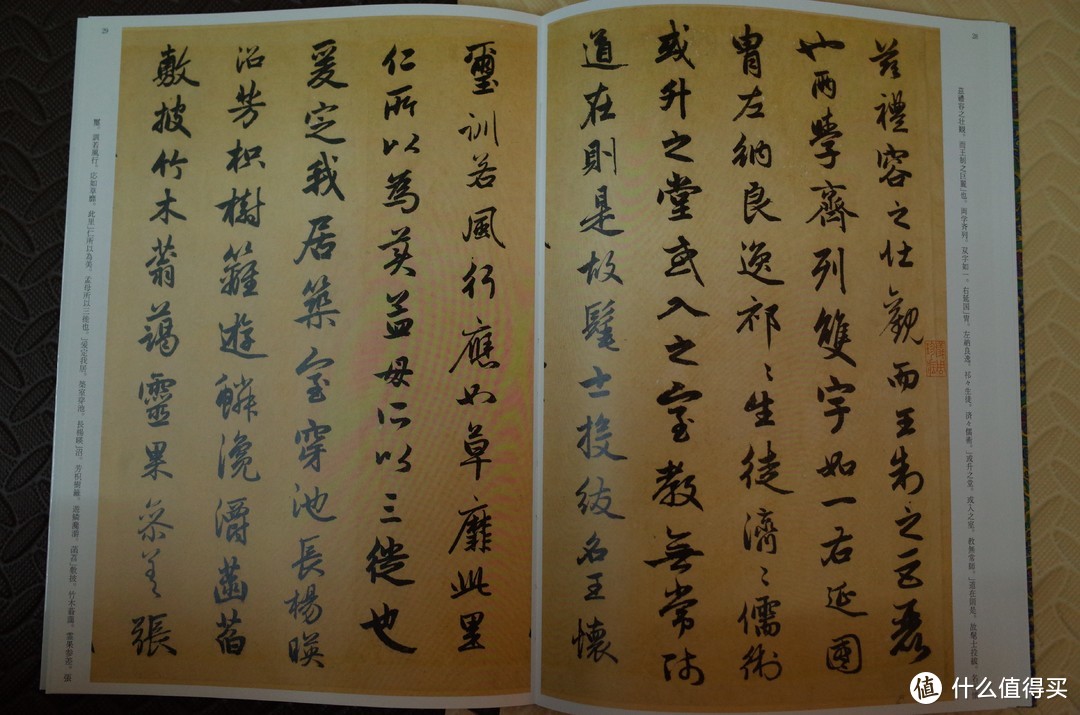 28
茲禮容之壮觀而王制之巨麗
也兩學齊列雙宇如一右延國
胄左納良逸祁〻生徒濟〻儒術
或升之堂或入之室教無常師
道在則是故髦士投紱名王懷
茲禮容之壮観。而王制之巨麗」也。両学斉列。双宇如一。右延国」胄。左納良逸。祁々生徒。済々儒術。」或升之堂。或入之室。教無常師。」道在則是。故髦士投紱。名
29
璽訓若風行應如草靡此里
仁所以為美孟母所以三徙也
爰定我居築室穿池長楊暎
沼芳枳樹籬遊鱗瀺灂菡萏
敷披竹木蓊藹靈果參差張
璽。訓若風行。応如草靡。此里」仁所以為美。孟母所以三徙也。」爰定我居。築室穿池。長楊暎」沼。芳枳樹籬。遊鱗瀺灂。菡萏」敷披。竹木蓊藹。霊果参差。張
值 什么值得买